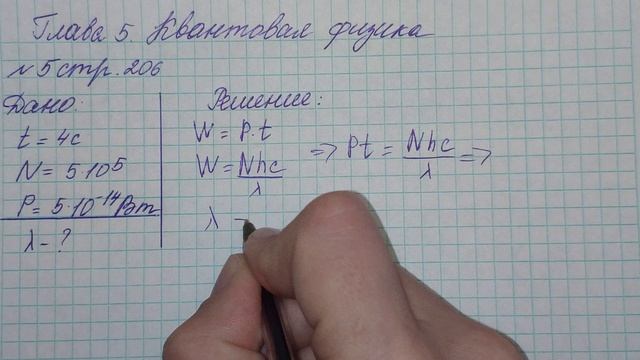 Глава 5. Квантовая физика
№ 5 стр. 206
Дано:
t = 4c
N = 5·10⁵
P = 5·10⁻¹⁴Вт
λ - ?
Решение:
W = P·t
W = Nhc/λ
=> Pt = Nhc/λ =>
λ -